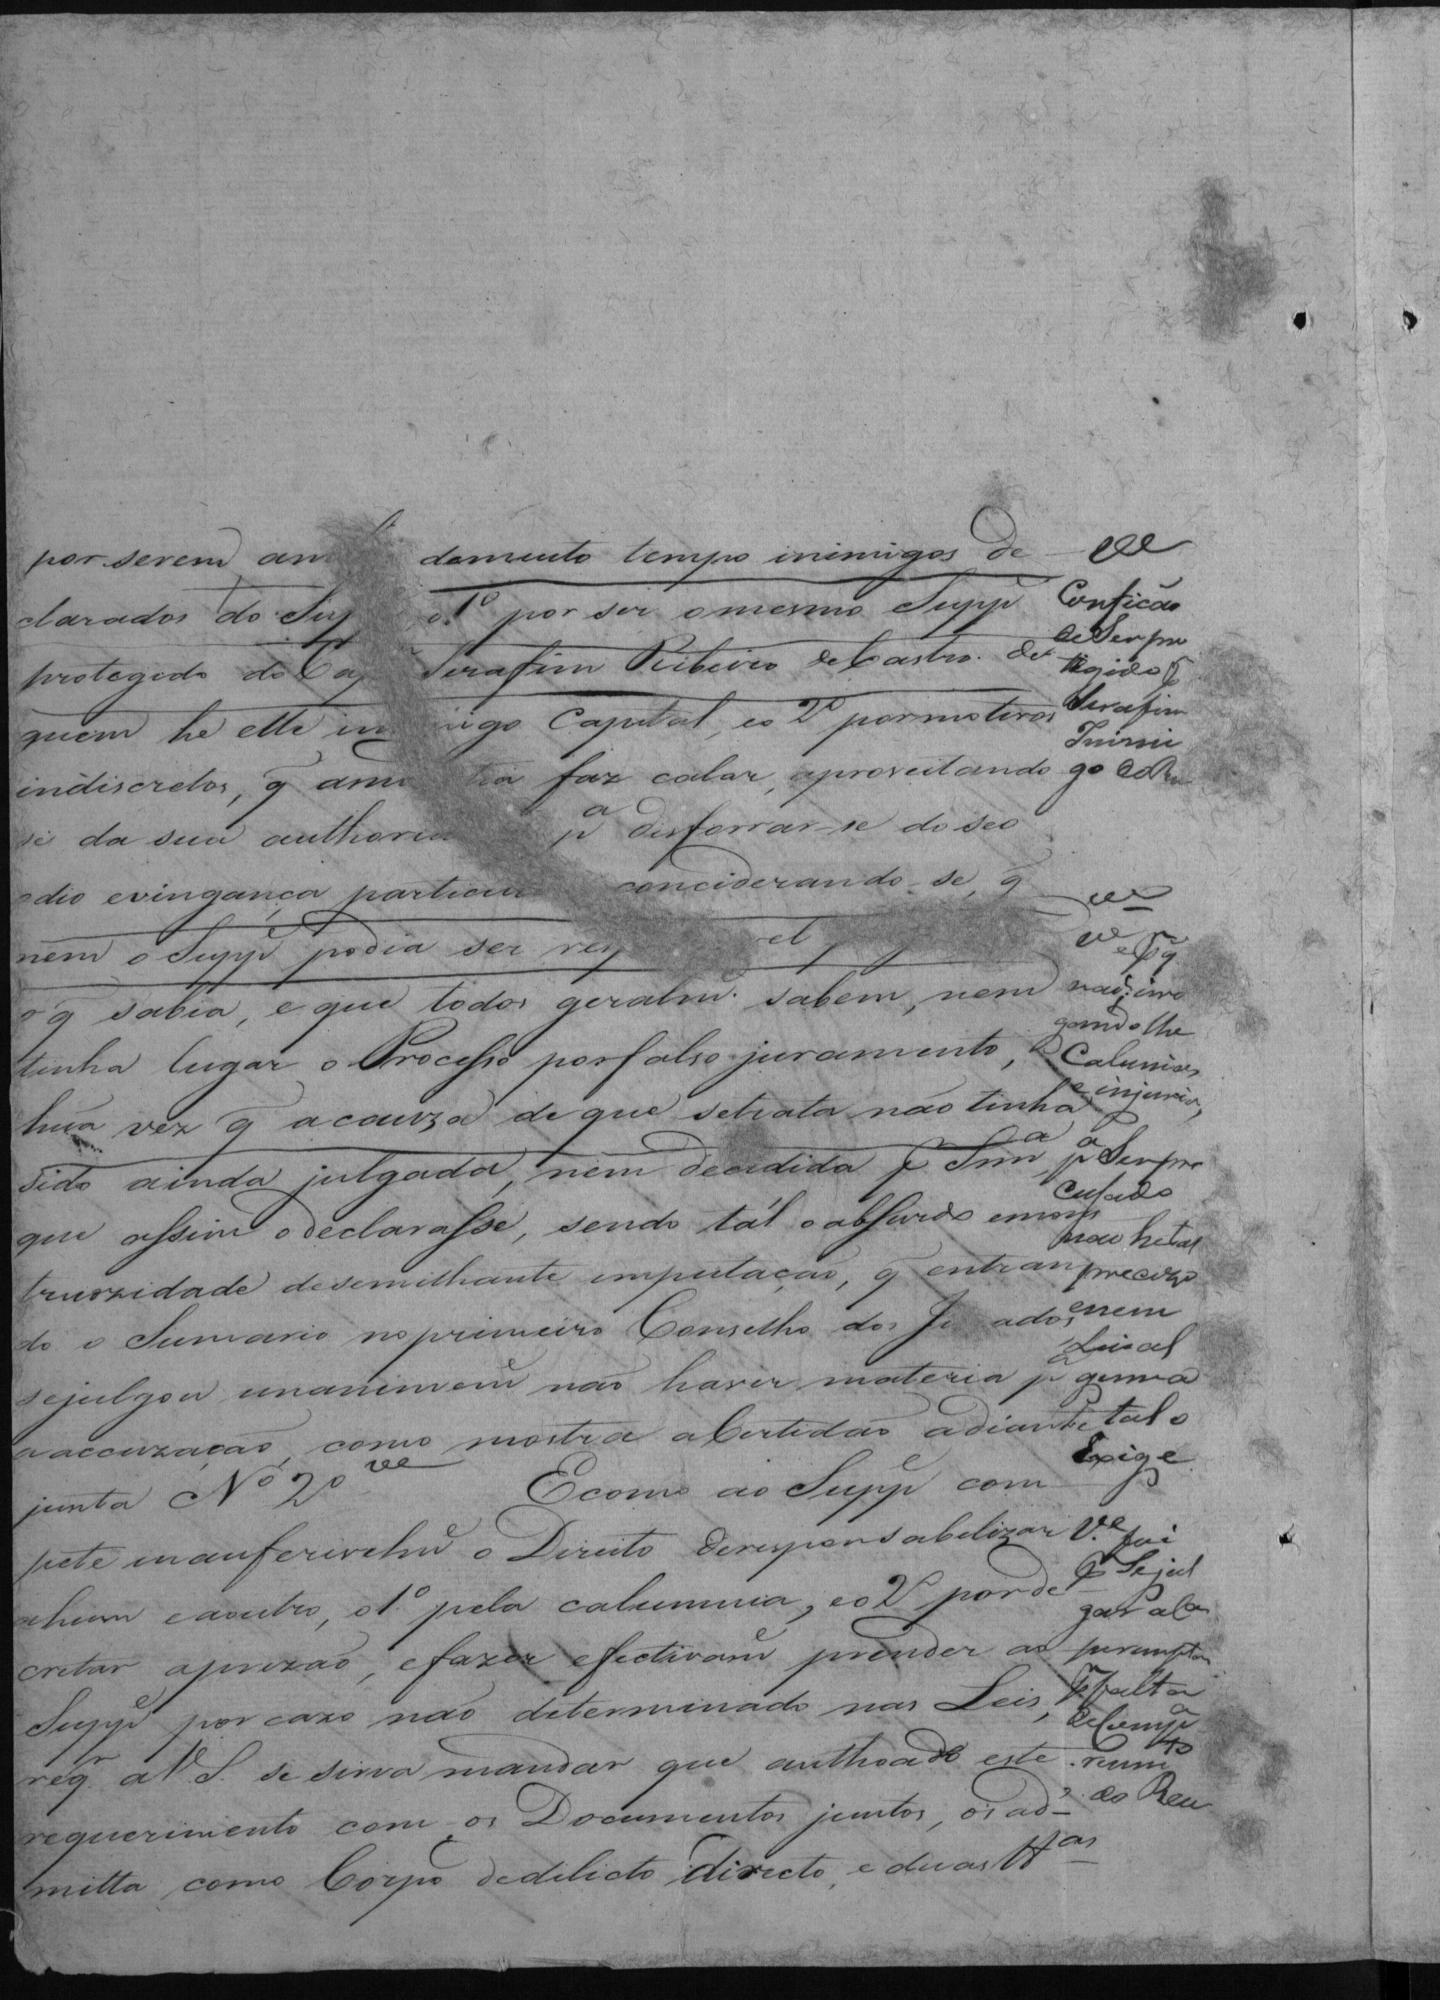 por serem am damento tempo inimigos de
clarados do Sup o 1º por ser o mesmo Suppe
protegido do Cap Serafim Ribeiro de Castro de
quem he elle in migo Capital, eo 2º por motivos
indiscretos, q̃ faz calar, aproveitando
se da sua authori pa desforrar-se do seo
odio evingança particu conciderando-se, q̃
nem o Suppe podia ser res el
o q̃ sabia, e que todos geralme sabem, nem
tinha lugar o Processo por falso juramento,
huã vez q̃ a cauza de que setrata não tinha
sido ainda julgada, nem decedida p Snna
que assim o declarasse, sendo tál o absurdo emons
truozidade desemilhante imputação, q̃ entran
do o Sumario no primeiro Conselho dos Ju ados,
sejulgou unanimeme não haver materia pa
a accuzação, como mostra a Certidão adiante
junta Nº 2º ve Ecomo ao Suppe com
pete inauferivelme o Direito deresponsabelizar
ahum eaoutro, o 1º pela calumnia, eo 2º por de
cretar aprizão, efazer efectivame prender ao
Suppe por cazo não determinado nas Leis,
reqr a V. S. se sirva mandar que authoado este
requerimento com os Documentos juntos, os ad-
mitta como Corpo dedelicto directo, e duas ttas
ve
Confição
de Ser pro
tegido p
Serafim
Inimi
go do Reu
ve
ve e pr q̃
não, impo
gando lhe
Calunias
e injurias,
pa Ser pro
cessado
não he tal
precizo
enem
Leis al
guma
tal o
Exige
Ve foi
p Se jul
gar a la
perempta
pr falta
de Compa
recimto
do Reu